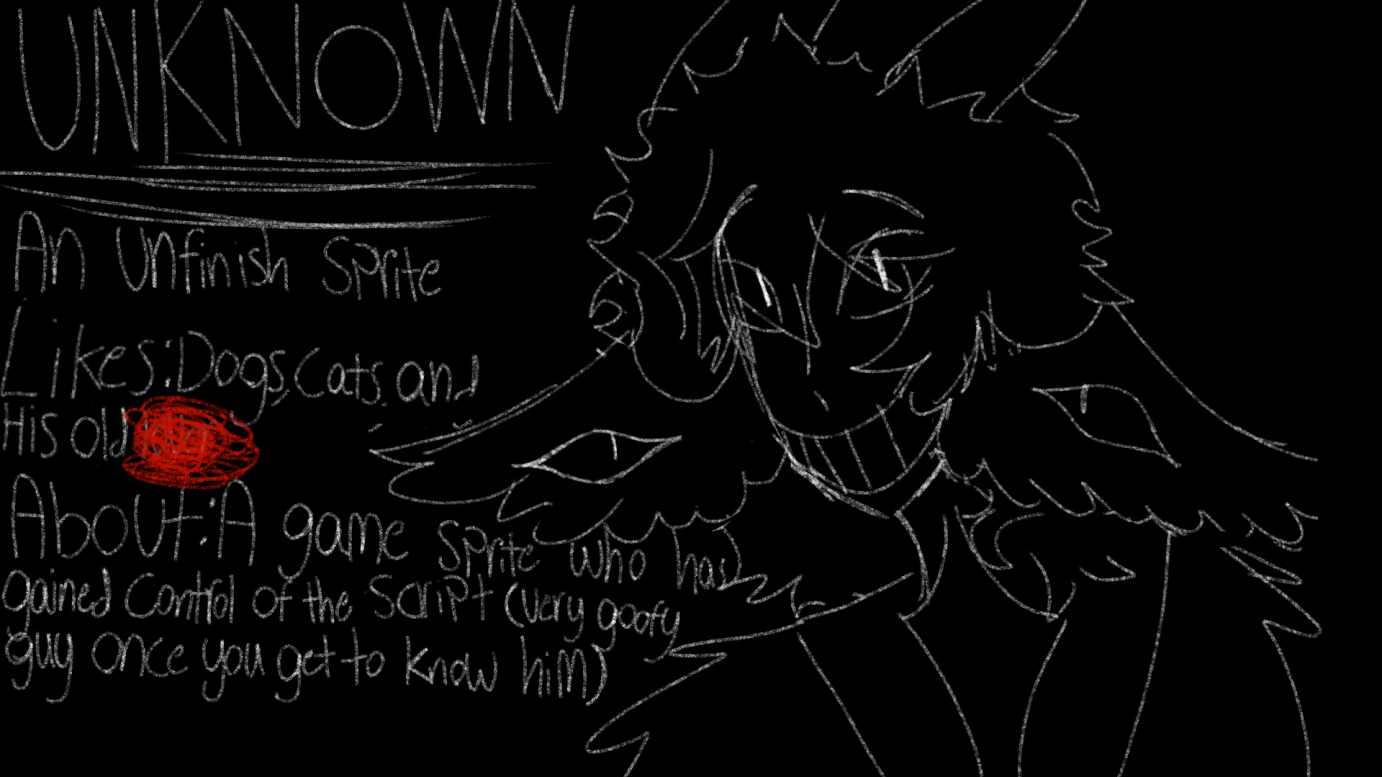 UNKNOWN
An Unfinish Sprite
Likes:Dogs,Cats,and
His old
About:A game sprite who has
gained control of the script (very goofy
guy once you get to know him)